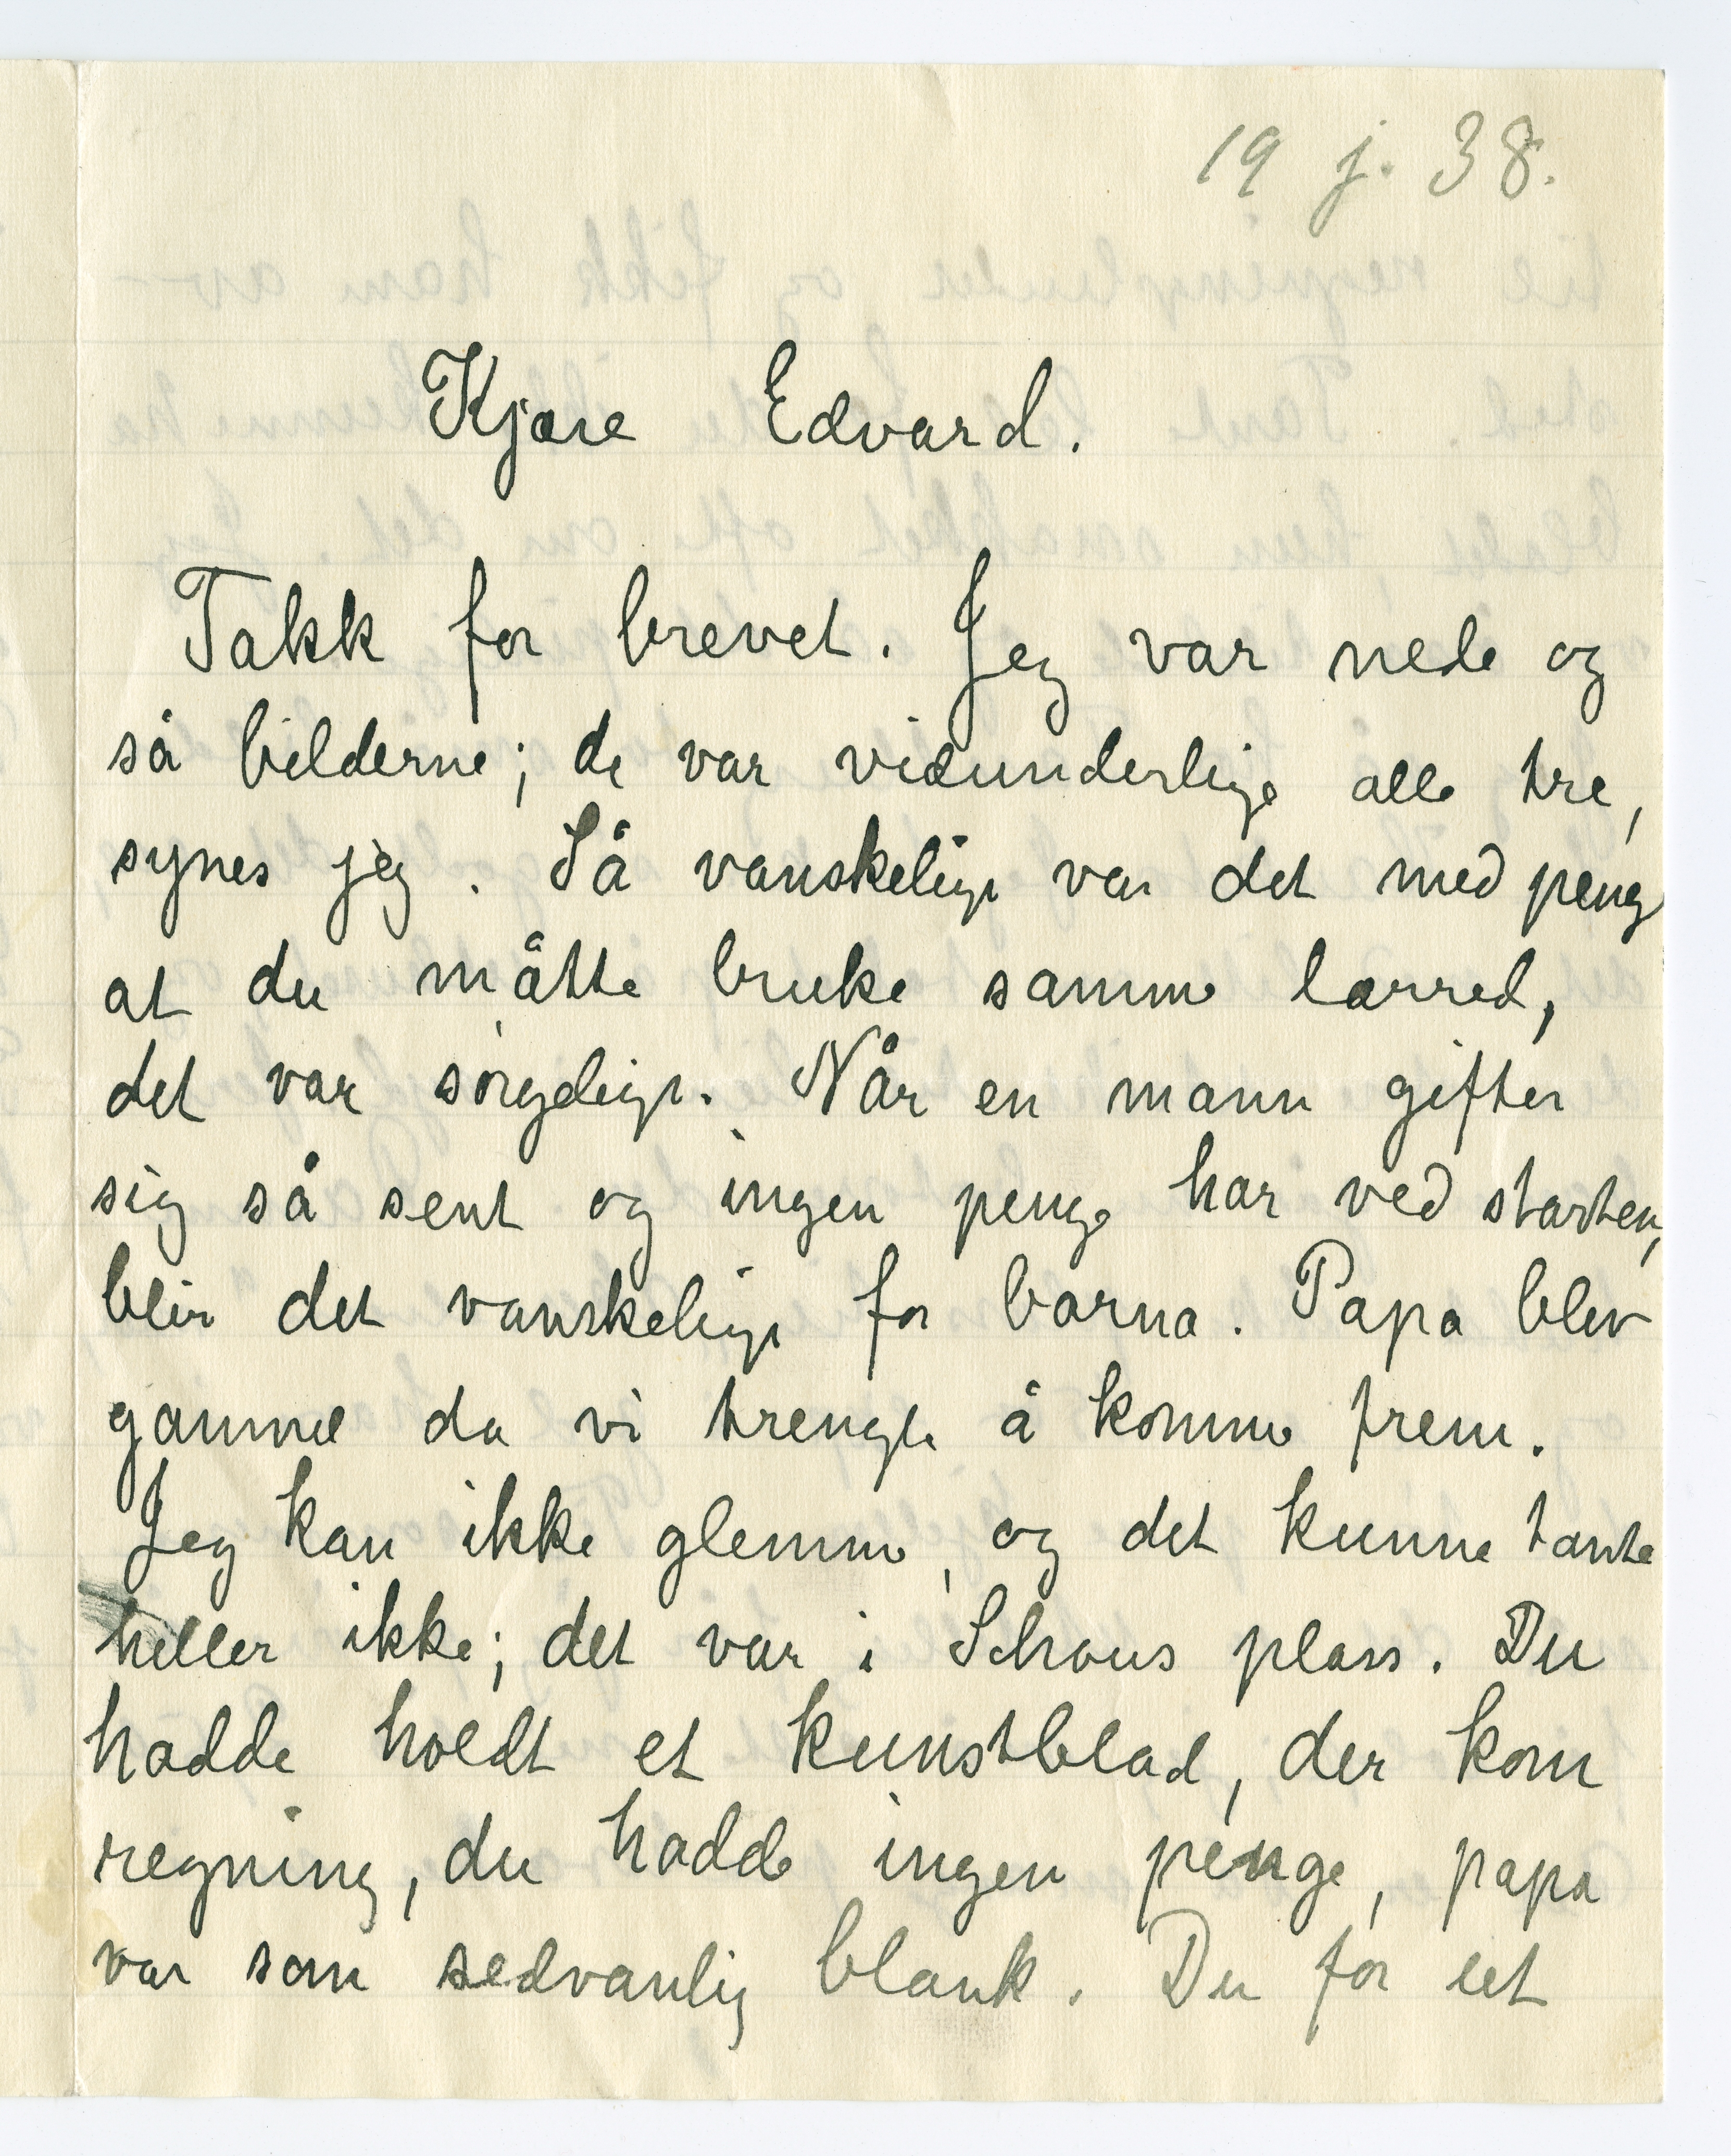 19 j. 38.
Kjære Edvard.
Takk for brevet. Jeg var nede og
så bilderne; de var vidunderlige alle tre,
synes jeg. Så vanskelige var det med peng
at du måtte bruke samme lærred,
det var sørgelige. Når en mann gifter
sig så sent og ingen penge har ved starten,
blir det vanskelige for barna. Papa blev
gammel da vi trengte å komme frem.
Jeg kan ikke glemme, og det kunne tante
heller ikke; det var i Schous plass. Du
hadde holdt et kunstblad, der kom
regning, du hadde ingen penge, papa
var som sedvanlig blank. Du for ut